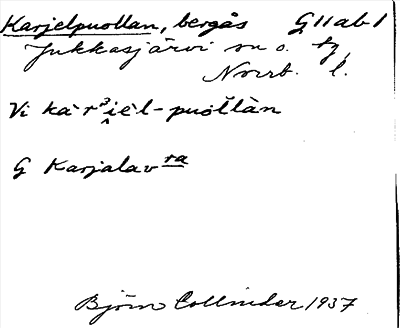 Karjelpuollan, bergås G 11 ab 1
Jukkasjärvi sn o. tg,
Norrb. l.
Vi kàrᵊi̭èl-puòĺlàn
G Karjalavra
Björn Collinder 1937